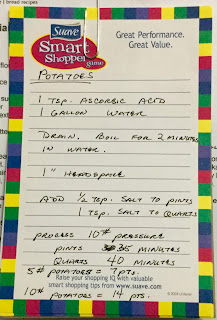 l bread recipes
Suave
Smart
Shopper
game
Great Performance.
Great Value.
POTATOES
1 TSP. ASCORBIC ACID
1 GALLON WATER
DRAIN. BOIL FOR 2 MINUTES
IN WATER.
1" HEADSPACE
ADD 1/2 TSP. SALT TO PINTS
1 TSP. SALT TO QUARTS
PROCESS 10# PRESSURE
PINTS 35 MINUTES
QUARTS 40 MINUTES
5# POTATOES = 7 PTS.
Raise your shopping IQ with valuable
smart shopping tips from www.suave.com
10# POTATOES = 14 PTS.